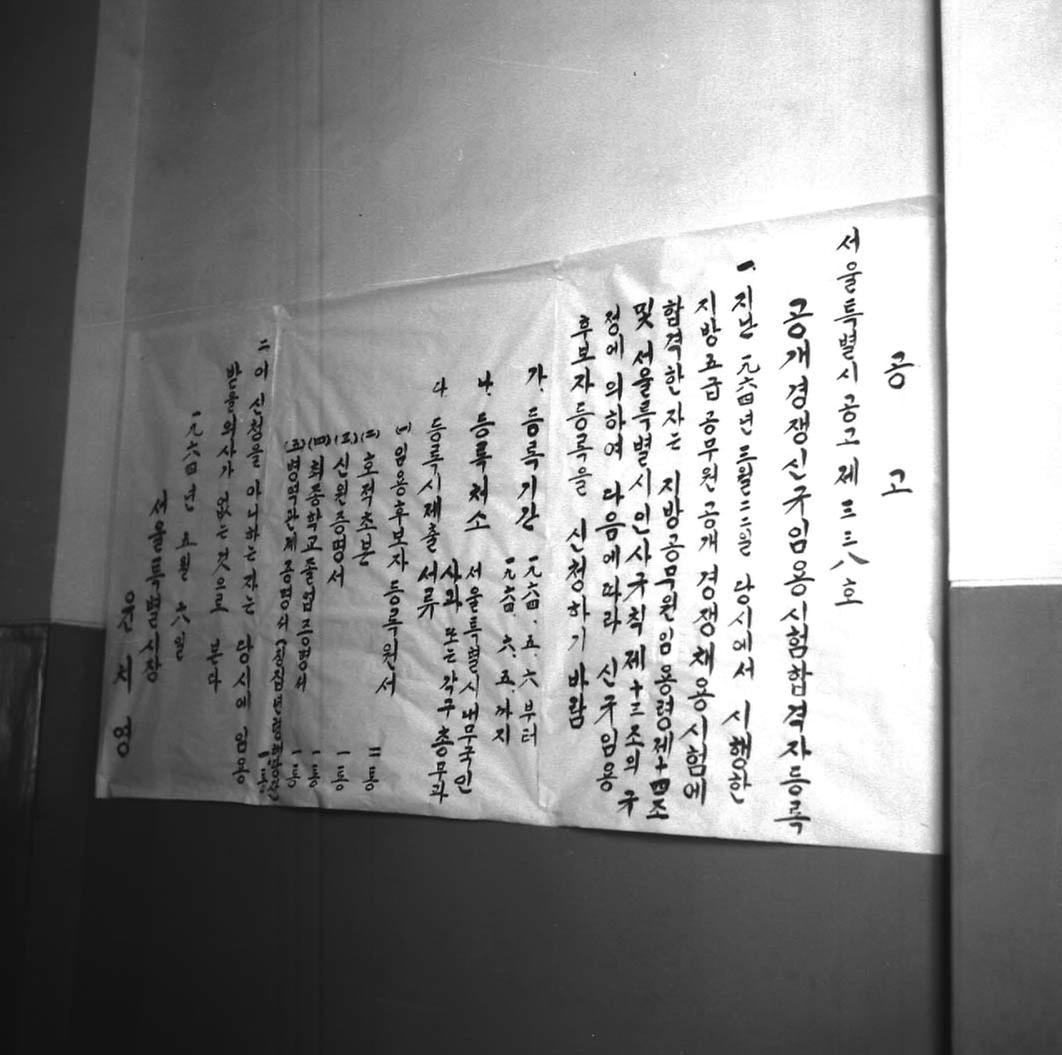 공고
서울특별시 공고 제 三三八호
공개경쟁신규임용시험합격자등록
一. 지난 一九六四년 三월二二일 당시에서 시행한
지방五급 공무원 공개 경쟁채용시험에
합격한 자는 지방공무원임용령제十四조
및 서울특별시인사규칙 제十三조의 규
정에 의하여 다음에따라 신규임용
후보자등록을 신청하기 바람
가. 등록기간 一九六四. 五. 六 부터
一九六四. 六. 五. 까지
나. 등록처소 서울특별시내무국인
사과 또는 각구 총무과
다. 등록시제출 서류
(一) 임용후보자 등록원서
(二) 호적초본 二통
(三) 신원증명서 一통
(四) 최종학교졸업증명서 一통
(五) 병역관계 증명서 一통
二 이 신청을 아니하는 자는 당시에 임용
받을의사가 없는 것으로 본다
一九六四년 五월 六일
서울특별시장
윤치영